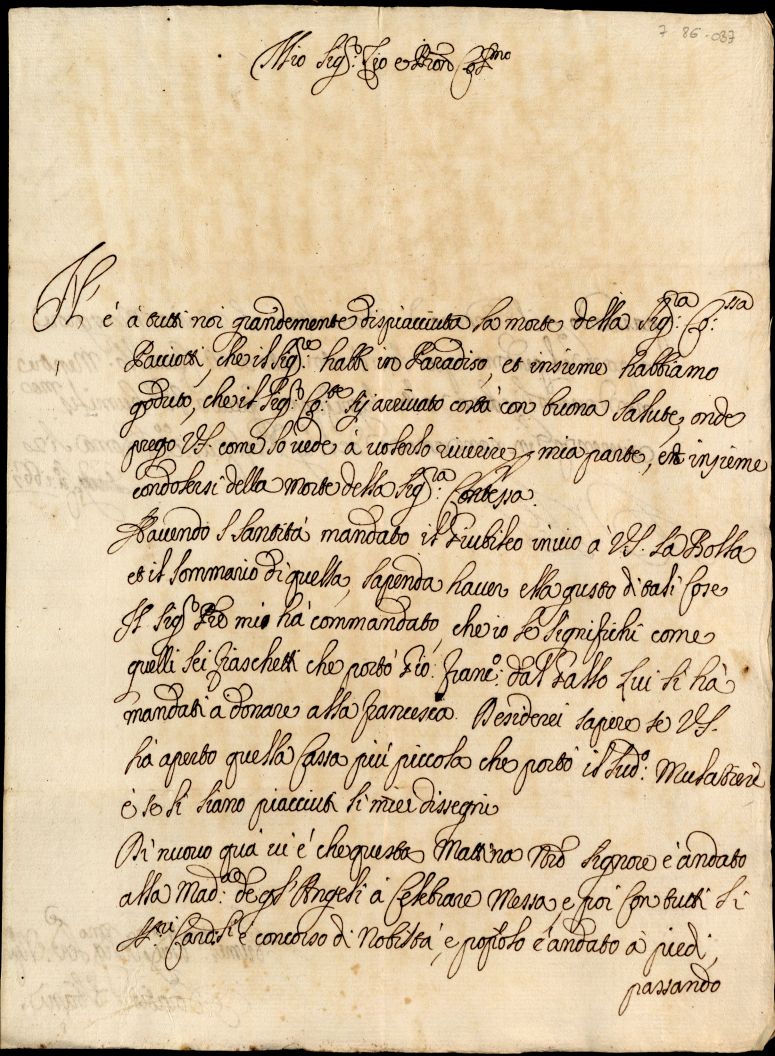 7 86-037
Mio Sig.re Zio e Pron Oss.mo
N' è à tutti noi grandemente dispiacciuta la morte della Sig.ra Co.ssa
Pacciotti, che il Sig.re habb in Paradiso, et insieme habbiamo
goduto, che il Sig.r Co.te sij arrivato costà con buona salute, onde
prego VS. come lo vede à volerlo riverire p mia parte, et insieme
condolersi della Morte della Sig.ra Contessa.
Havendo S Santità mandato il Giubileo invio à VS. La Bolla
et il sommario di quella, sapendo haver ella gusto di tali Cose
Il Sig.r Pre mio hà commandato, che io le significhi come
quelli sei fiaschetti che portò Gio: Franc.o: dal Gallo Lui li hà
mandati à donare alla Francesca. Desiderei sapere se VS.
hà aperto quella Cassa più piccola che portò il sud.o: Mulattiere
è se li siano piacciuti li miei dissegni
Di nuovo quà vi è che questa Mattina Nro Signore è andato
alla Mad.a de gl'Angeli à Celebrare Messa, e poi con tutti li
SS.ri Card.li è concorso di Nobiltà, e popolo è andato à piedi,
passando